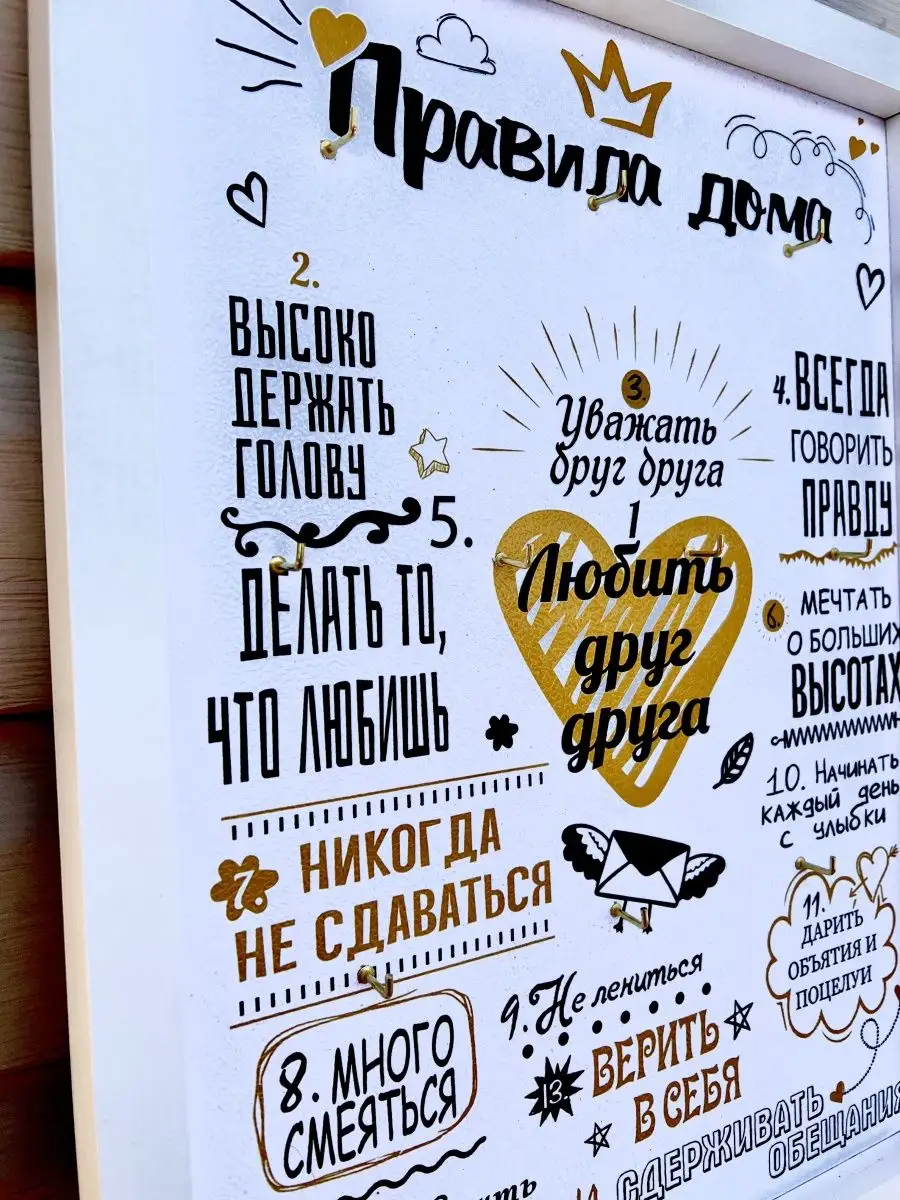 Правила дома
2.
ВЫСОКО
ДЕРЖАТЬ
ГОЛОВУ
3.
Уважать
друг друга
4. ВСЕГДА
ГОВОРИТЬ
ПРАВДУ
5.
ДЕЛАТЬ ТО,
ЧТО ЛЮБИШЬ
1
Любить
друг
друга
6. МЕЧТАТЬ
О БОЛЬШИХ
ВЫСОТАХ
7 НИКОГДА
НЕ СДАВАТЬСЯ
10. Начинать
каждый день
с улыбки
11.
ДАРИТЬ
ОБЪЯТИЯ И
ПОЦЕЛУИ
8. МНОГО
СМЕЯТЬСЯ
9. Не лениться
13. ВЕРИТЬ
В СЕБЯ
СДЕРЖИВАТЬ
ОБЕЩАНИЯ